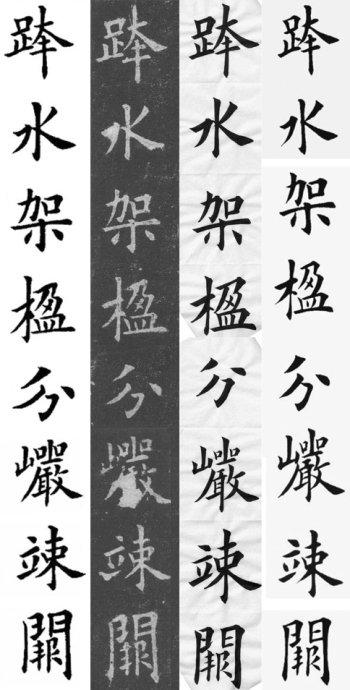 跨水架楹分巖竦闕
跨水架楹分巖竦闕
跨水架楹分巖竦闕
跨水架楹分巖竦闕